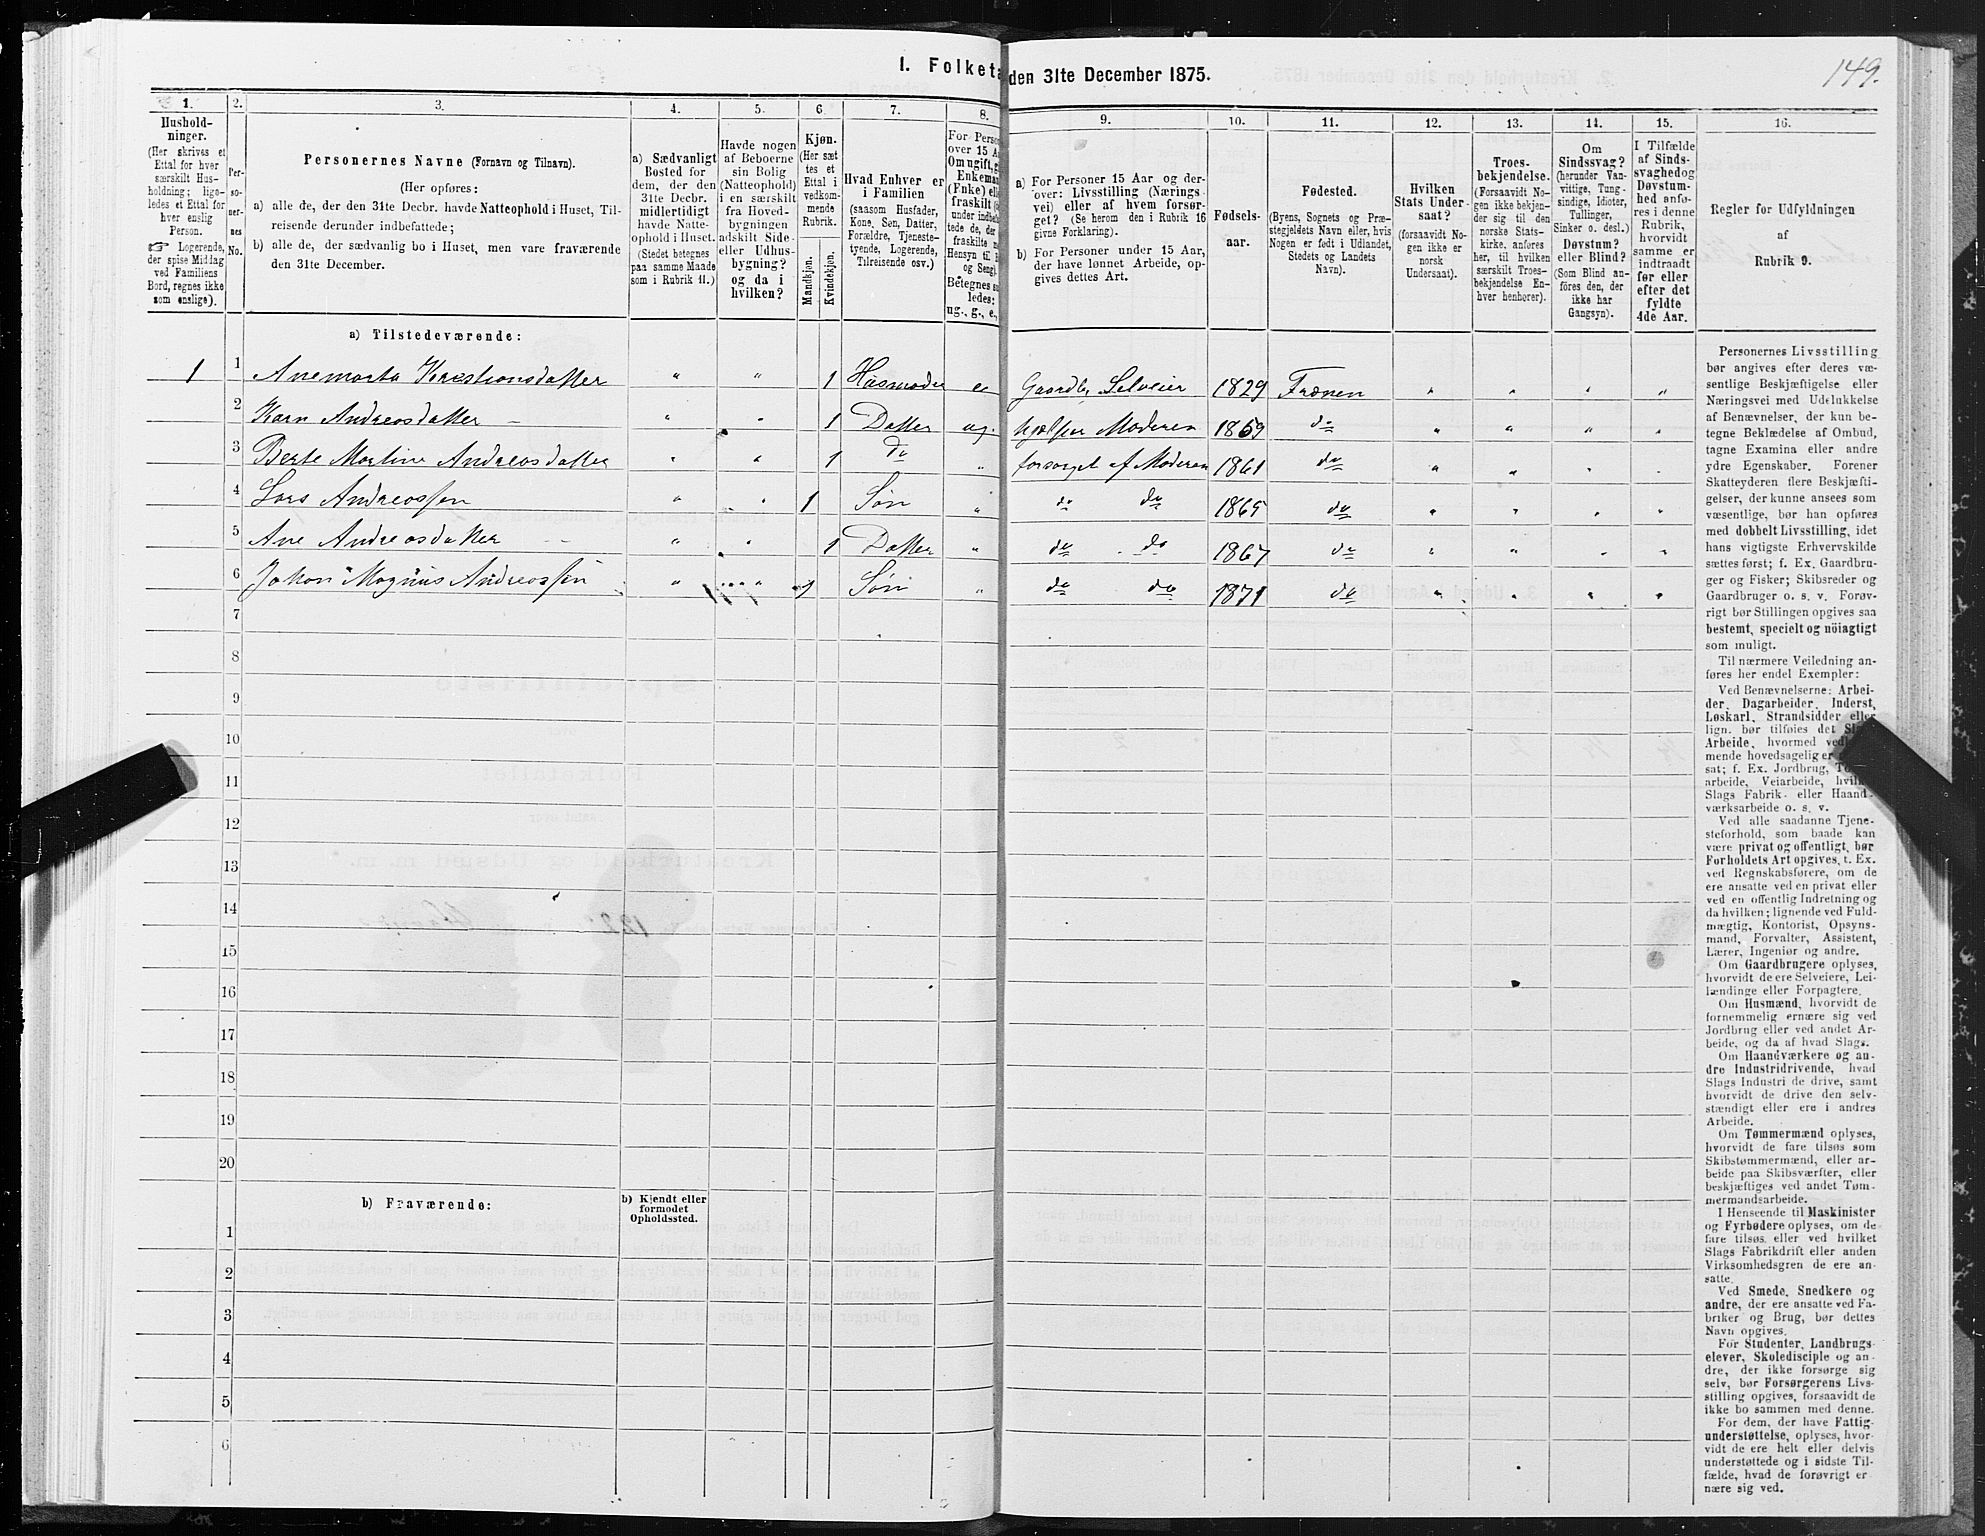 149.
I. Folketa
den 31te December 1875.
1. 2. 3. 4. 5. 6 7. 8. 9. 10. 11. 12. 13. 14. 15. 16.
Hushold-
ninger.
(Her skrives et
Ettal for hver
særskilt Hus-
holdning; lige-
ledes et Ettal for
hver enslig
Person.
☞ Logerende,
der spise Middag
ved Familiens
Bord, regnes ikke
som enslige).
Per-
so-
ner-
nes
No.
Personernes Navne (Fornavn og Tilnavn).
(Her opføres:
a) alle de, der den 31te Decbr. havde Natteophold i Huset, Til-
reisende derunder indbefattede;
b) alle de, der sædvanlig bo i Huset, men vare fraværende
den 31te December.
a) Sædvanligt
Bosted for
dem, der den
31te Decbr.
midlertidigt
havde Natte-
ophold i Huset.
(Stedet betegnes
paa samme Maade
som i Rubrik 11.)
Havde nogen
af Beboerne
sin Bolig
(Natteophold)
i en særskilt
fra Hoved-
bygningen
adskilt Side-
eller Udhus-
bygning?
og da i
hvilken?
Kjøn.
(Her sæt
tes et
Ettal i
vedkom-
mende
Rubrik.
Mandkjøn.
Kvindekjøn.
Hvad Enhver er
i Familien
(saasom Husfader,
Kone, Søn, Datter,
Forældre, Tjeneste-
tyende, Logerende,
Tilreisende osv.)
For Perso
over 15 A
Om ugift, g
Enkeman
(Enke) ell
fraskilt (
under indbe
tede de, der
fraskilte
Hensyn til
og Seng)
Betegnes s
ledes:
ug., g., e.,
a) For Personer 15 Aar og der-
over: Livsstilling (Nærings-
vei) eller af hvem forsør-
get? (Se herom den i Rubrik 16
givne Forklaring).
b) For Personer under 15 Aar,
der have lønnet Arbeide, op-
gives dettes Art.
Fødsels-
aar.
Fødested.
(Byens, Sognets og Præ-
stegjeldets Navn eller, hvis
Nogen er født i Udlandet,
Stedets og Landets
Navn).
Hvilken
Stats Under-
saat?
(forsaavidt No-
gen ikke er
norsk
Undersaat).
Troes-
bekjendelse.
(Forsaavidt No-
gen ikke bekjen-
der sig til den
norske Stats-
kirke, anføres
her, til hvilken
særskilt Troes-
bekjendelse En-
hver henhører).
Om
Sindssvag?
(herunder Van-
vittige, Tung-
sindige, Idioter,
Tullinger,
Sinker o. desl.)
Døvstum?
eller Blind?
(Som Blind an-
føres den, der
ikke har
Gangsyn).
I Tilfælde
af Sinds-
svaghed og
Døvstum-
hed anfø-
res i denne
Rubrik,
hvorvidt
samme er
indtraadt
før eller
efter det
fyldte
4de Aar.
Regler for Udfyldningen
af
Rubrik 9.
a) Tilstedeværende:
1 1 Anemarta Krestiansdatter " " 1 Husmoder e Gaardbr. Selveier 1829 Frænen " " " "
2 Karn Andreasdatter " " 1 Datter ug. hjælper Moderen 1859 do " " " "
3 Berte Martine Andreasdatter " " 1 do " forsørget af Moderen 1861 do " " " "
4 Lars Andreassen " " 1 Søn " do do 1865 do " " " "
5 Ane Andreasdatter " " 1 Datter " do do 1867 do " " " "
6 Johan Magnus Andreassen " " 1 Søn " do do 1871 do " " " "
7
8
9
10
11
12
13
14
15
16
17
18
19
20
b) Fraværende:
b) Kjendt eller
formodet
Opholdssted.
1
2
3
4
5
6
Personernes Livsstilling
bør angives efter deres væ-
sentlige Beskjæftigelse eller
Næringsvei med Udelukkelse
af Benævnelser, der kun be-
tegne Beklædelse af Ombud,
tagne Examina eller andre
ydre Egenskaber. Forener
Skatteyderen flere Beskjæfti-
gelser, der kunne ansees som
væsentlige, bør han opføres
med dobbelt Livsstilling, idet
hans vigtigste Erhvervskilde
sættes først; f. Ex. Gaardbru-
ger og Fisker; Skibsreder og
Gaardbruger o. s. v. Forøv-
rigt bør Stillingen opgives saa
bestemt, specielt og nöiagtigt
som muligt.
Til nærmere Veiledning an-
føres her endel Exempler:
Ved Benævnelserne: Arbei-
der, Dagarbeider, Inderst,
Løskarl, Strandsidder eller
lign. bør tilføies det Sl
Arbeide, hvormed ved
mende hovedsagelig er
sat; f. Ex. Jordbrug, T
arbeide, Veiarbeide, hvil
Slags Fabrik- eller Haand-
værksarbeide o. s. v.
Ved alle saadanne Tjene-
steforhold, som baade kan
være privat og offentligt, bør
Forholdets Art opgives, t. Ex.
ved Regnskabsførere, om de
ere ansatte ved en privat eller
ved en offentlig Indretning og
da hvilken; lignende ved Fuld-
mægtig, Kontorist, Opsyns-
mand, Forvalter, Assistent,
Lærer, Ingeniør og andre.
Om Gaardbrugere oplyses,
hvorvidt de ere Selveiere, Lei-
lændinge eller Forpagtere.
Om Husmænd, hvorvidt de
fornemmelig ernære sig ved
Jordbrug eller ved andet Ar-
beide, og da af hvad Slags.
Om Haandværkere og an-
dre Industridrivende, hvad
Slags Industri de drive, samt
hvorvidt de drive den selv-
stændigt eller ere i andres
Arbeide.
Om Tømmermænd oplyses,
hvorvidt de fare tilsøs som
Skibstømmermænd, eller ar-
beide paa Skibsværfter, eller
beskjæftiges ved andet Tøm-
mermandsarbeide.
I Henseende til Maskinister
og Fyrbødere oplyses, om de
fare tilsøs eller ved hvilket
Slags Fabrikdrift eller anden
Virksomhedsgren de ere an-
satte.
Ved Smede, Snedkere og
andre, der ere ansatte ved Fa-
briker og Brug, bør dettes
Navn opgives.
For Studenter, Landbrugs-
elever, Skoledisciple og an-
dre, der ikke forsørge sig
selv, bør Forsørgerens Livs-
stilling opgives, forsaavidt de
ikke bo sammen med denne.
For dem, der have Fattig-
understøttelse, oplyses, hvor-
vidt de ere helt eller delvis
understøttede og i sidste Til-
fælde, hvad de forøvrigt er
nære sig ved.